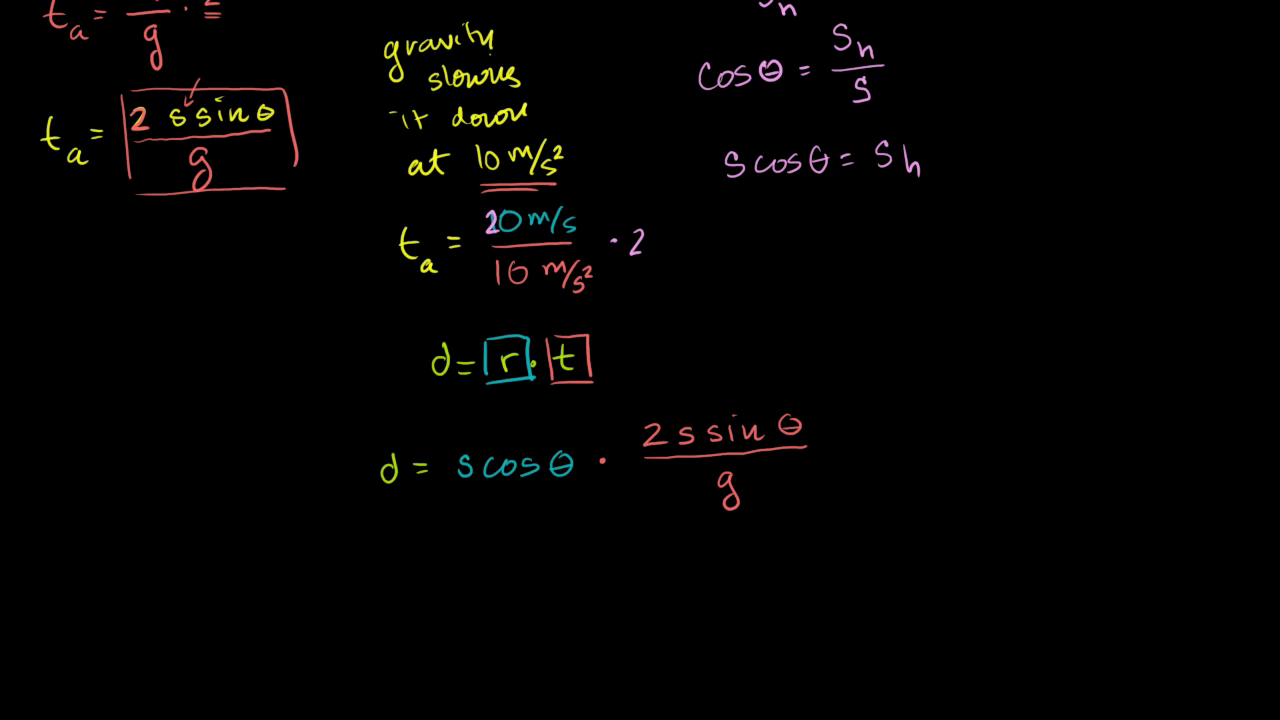 t_a = /g · 2
t_a = 2 s sin θ / g
gravity
slows
it down
at 10 m/s²
t_a = 20 m/s / 10 m/s² · 2
d = r · t
d = s cos θ · 2 s sin θ / g
cos θ = s_h / s
s cos θ = s_h